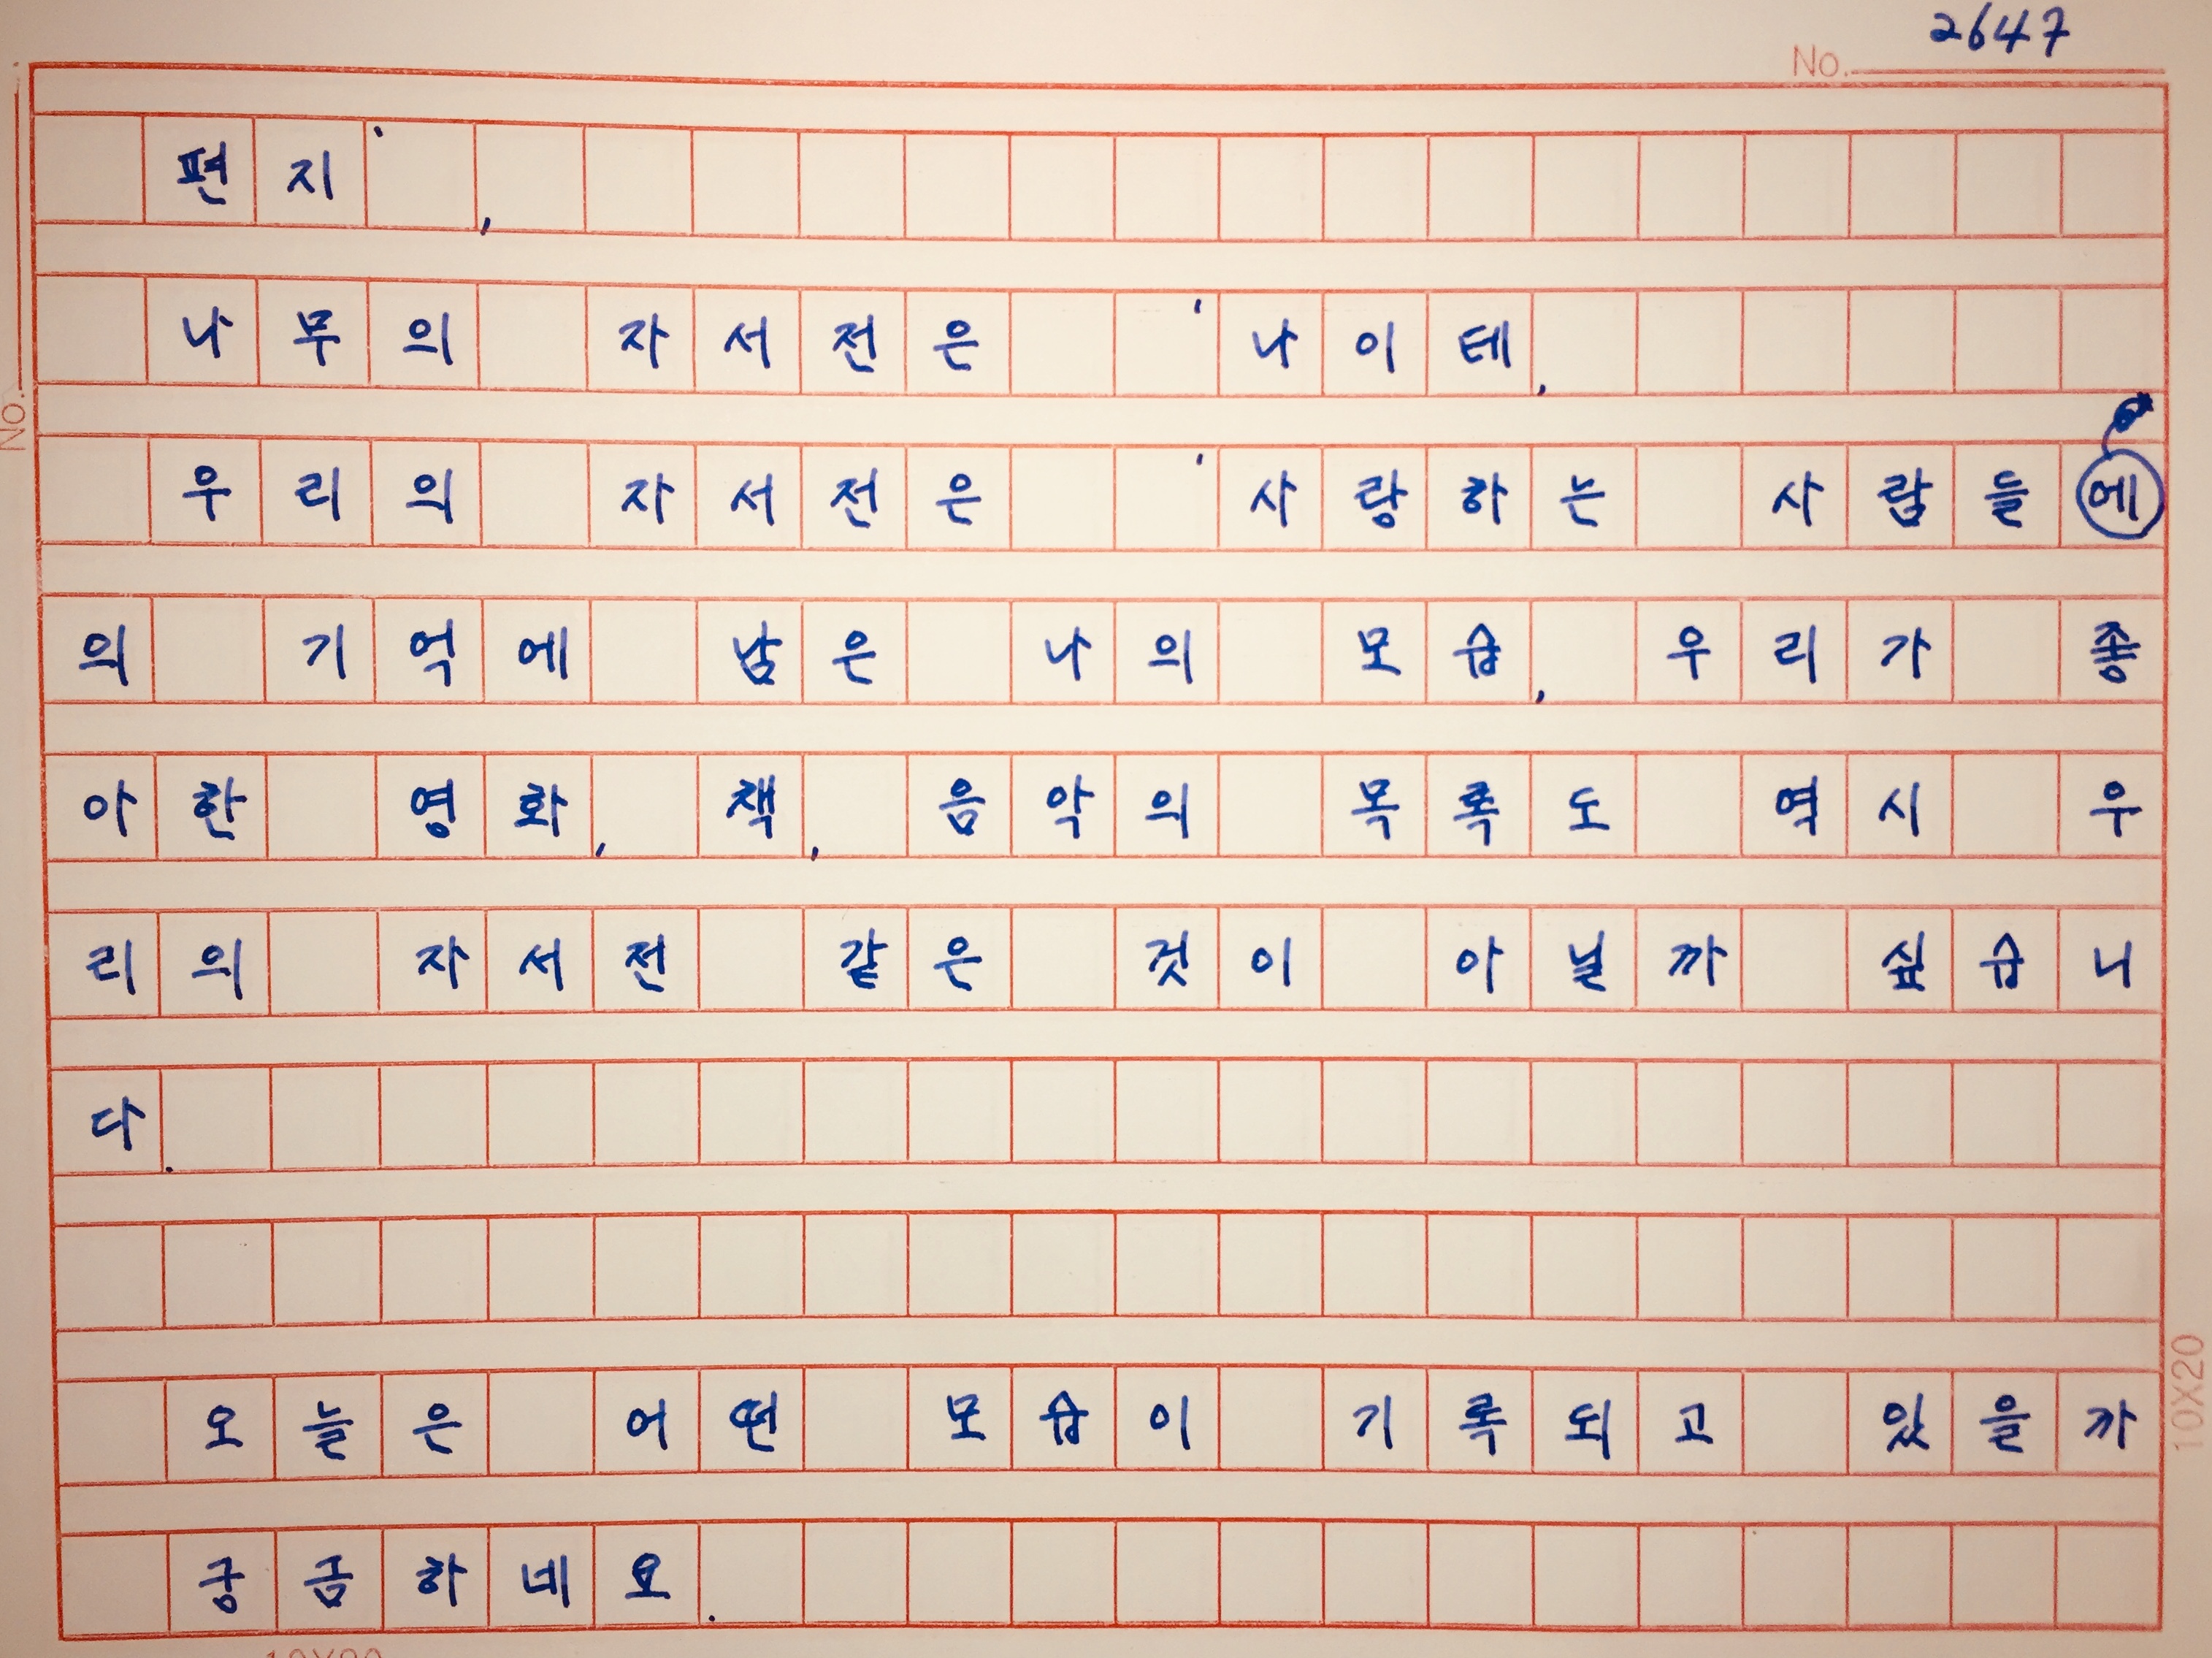 2647
No.
편지',
나무의 자서전은 '나이테,
No.
우리의 자서전은 '사랑하는 사람들에
의 기억에 남은 나의 모습, 우리가 좋
아한 영화, 책, 음악의 목록도 역시 우
리의 자서전 같은 것이 아닐까 싶습니
다.
오늘은 어떤 모습이 기록되고 있을까
궁금하네요.
10X20
10X20